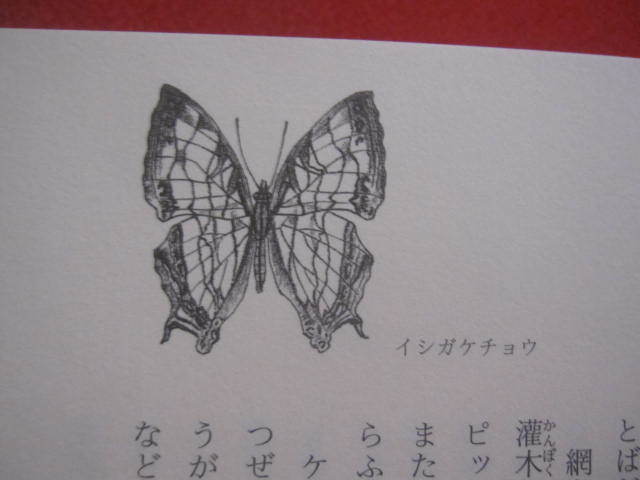 イシガケチョウ
とば
網
灌木
かんぼく
ピッ
また
らふ
ケ
つぜ
うが
など